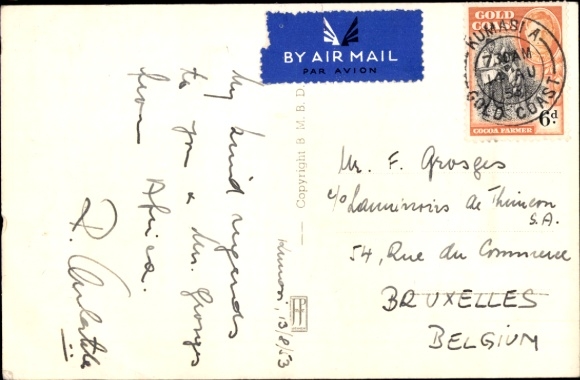 GOLD
COAST
KUMASI A
7.30AM
14 AU
GOLD COAST
6d
COCOA FARMER
BY AIR MAIL
PAR AVION
My kind regards
to you & Mrs. Grosges
from Africa.
Kumasi, 13/8/53
Copyright B. M. B. D.
Mr. F. Grosges
c/o Laminoirs de Thimeon
S.A.
54, Rue du Commerce
BRUXELLES
BELGIUM